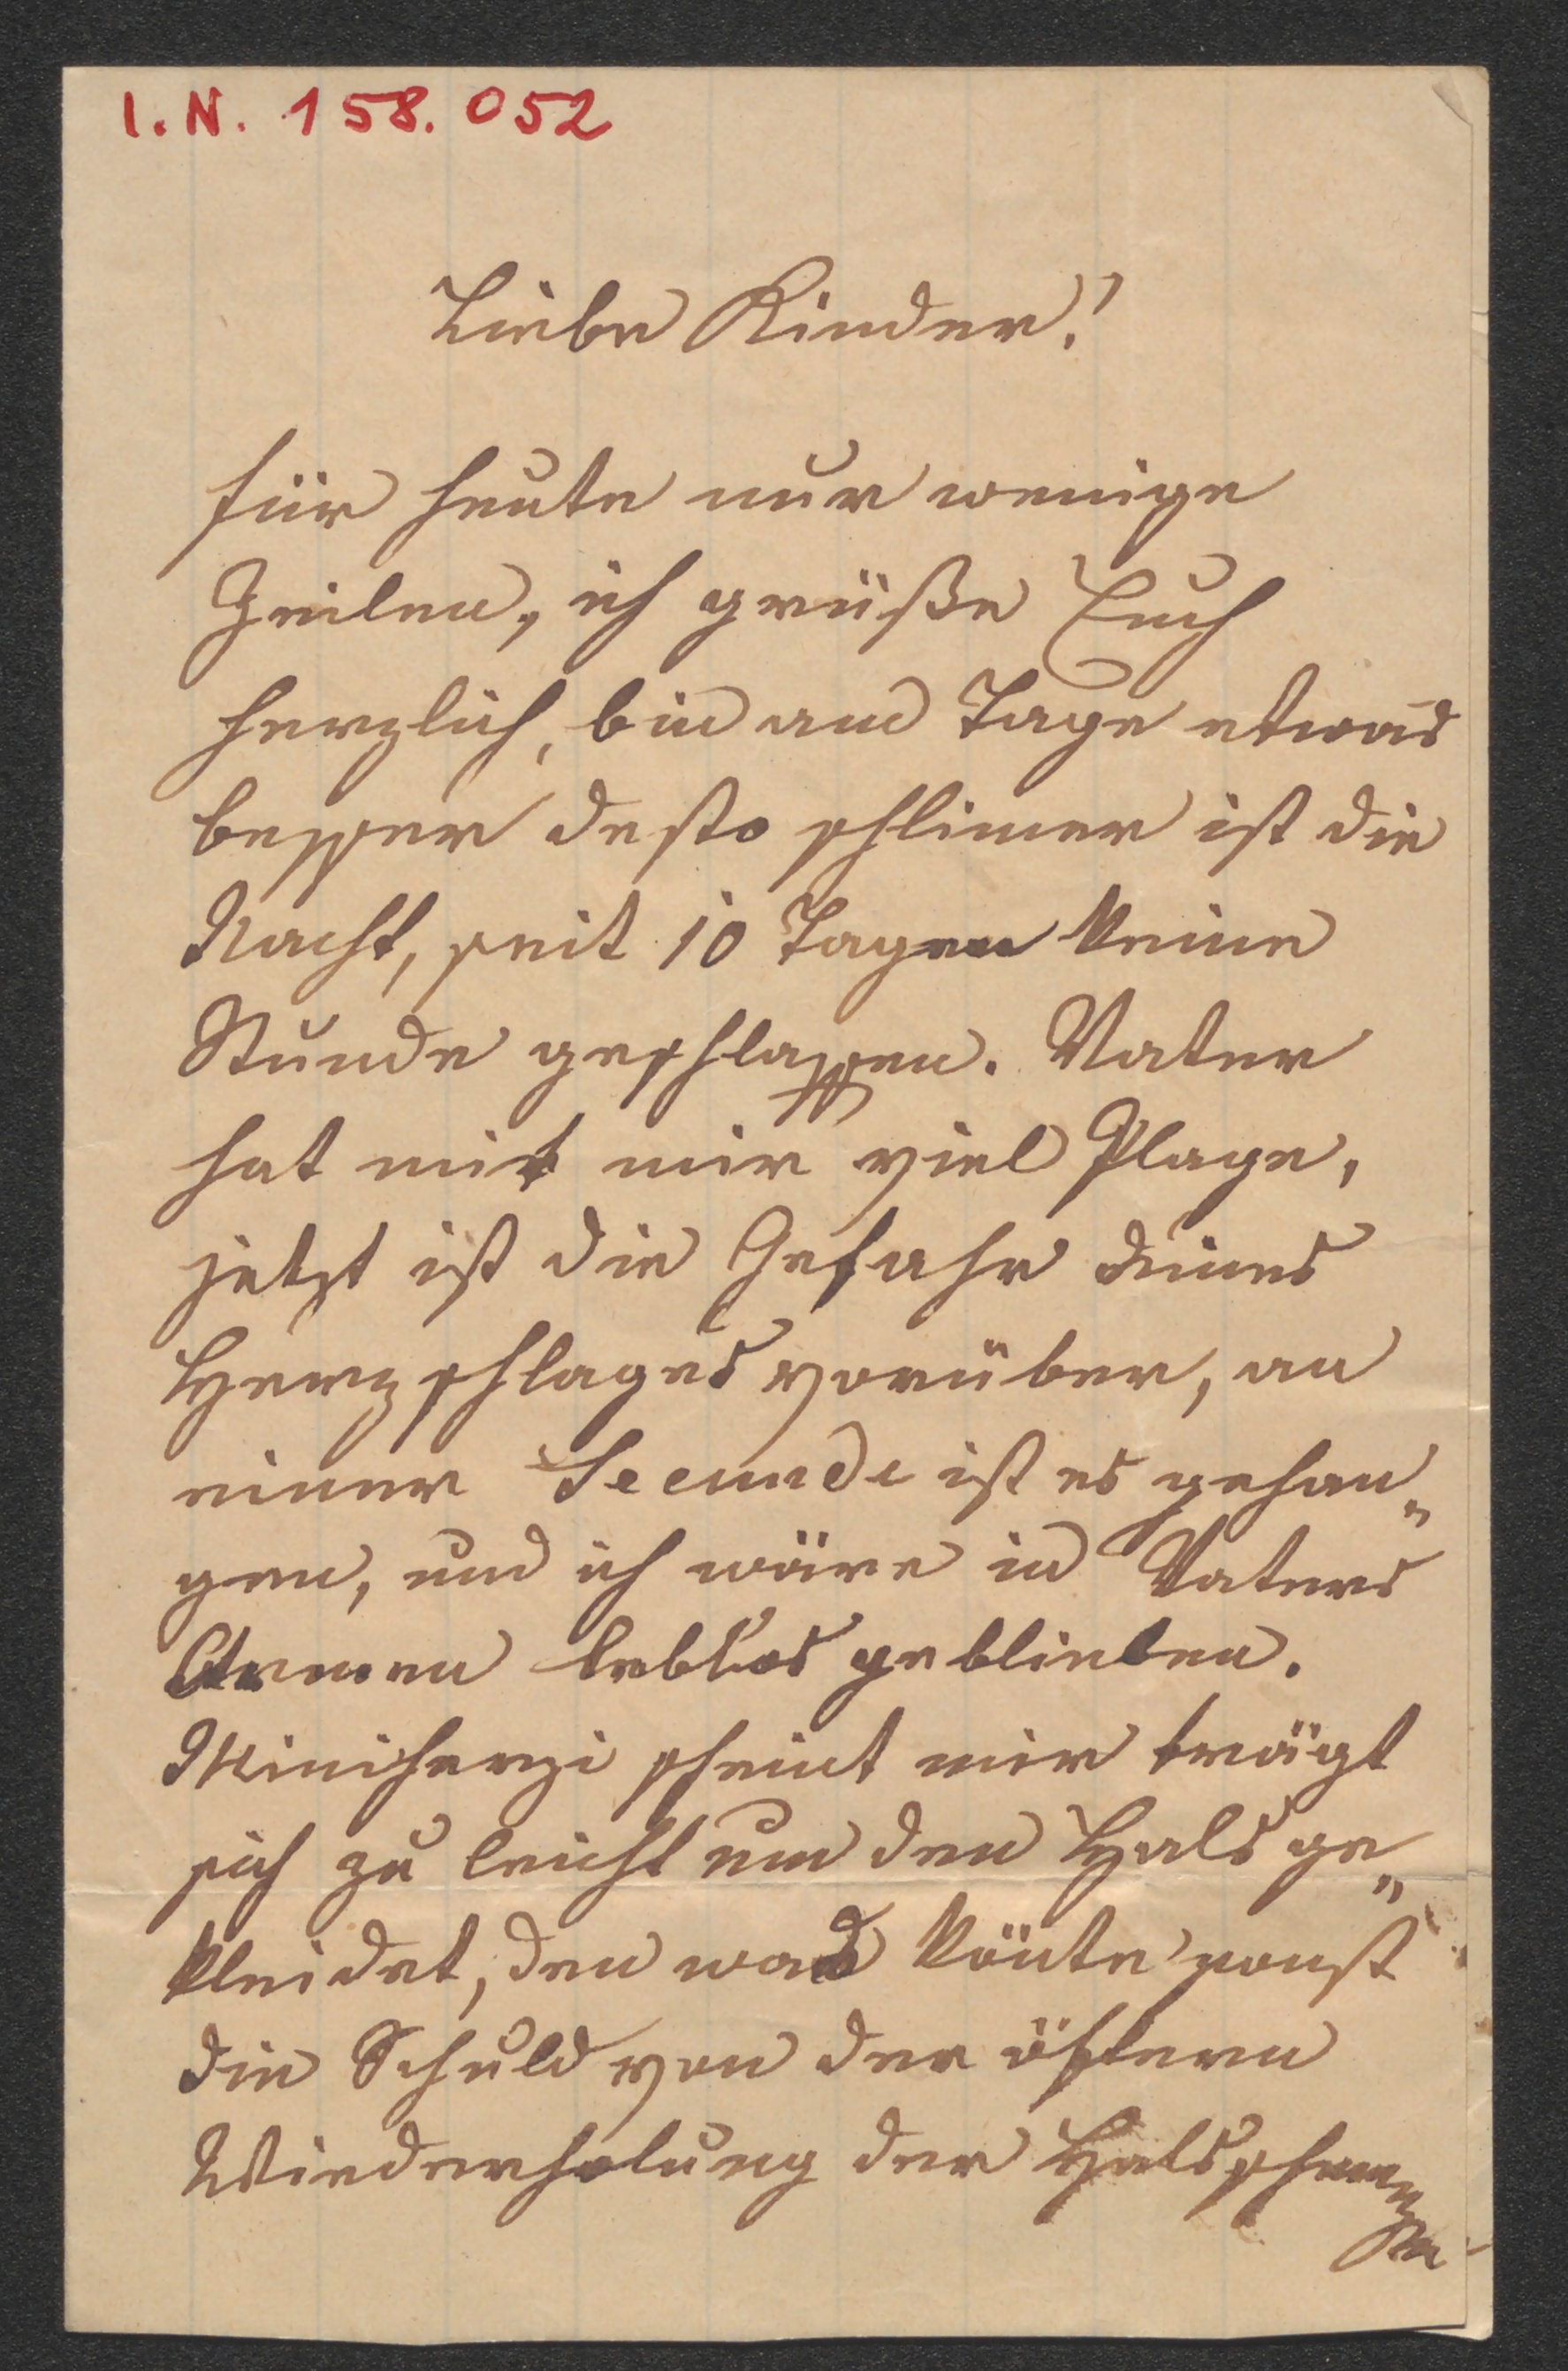 I.N. 158.052
Liebe Kinder!
für heute nur wenige
Zeilen, ich grüße Euch
herzlich, bin am Tage etwas
besser desto schlimer ist die
Nacht, seit 10 Tagen keine
Stunde geschlaffen. Vater
hat mit mir viel Plage,
jetzt ist die Gefahr eines
Herzschlages vorüber, an
einer Secunde ist es gehan„
gen, und ich wäre in Vaters
Armen leblos geblieben.
Miniherzi scheint mir trägt
sich zu leicht um den Hals ge„
kleidet, den was könte sonst
die Schuld von der öftern
Wiederholung der Halsschmerzen